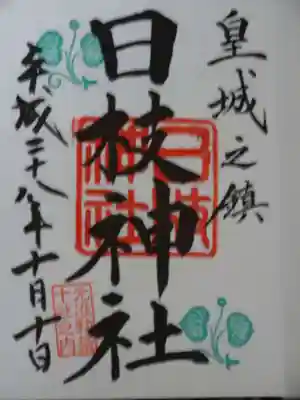 皇城之鎮
日枝神社
平成二十八年十月十日
日枝神社